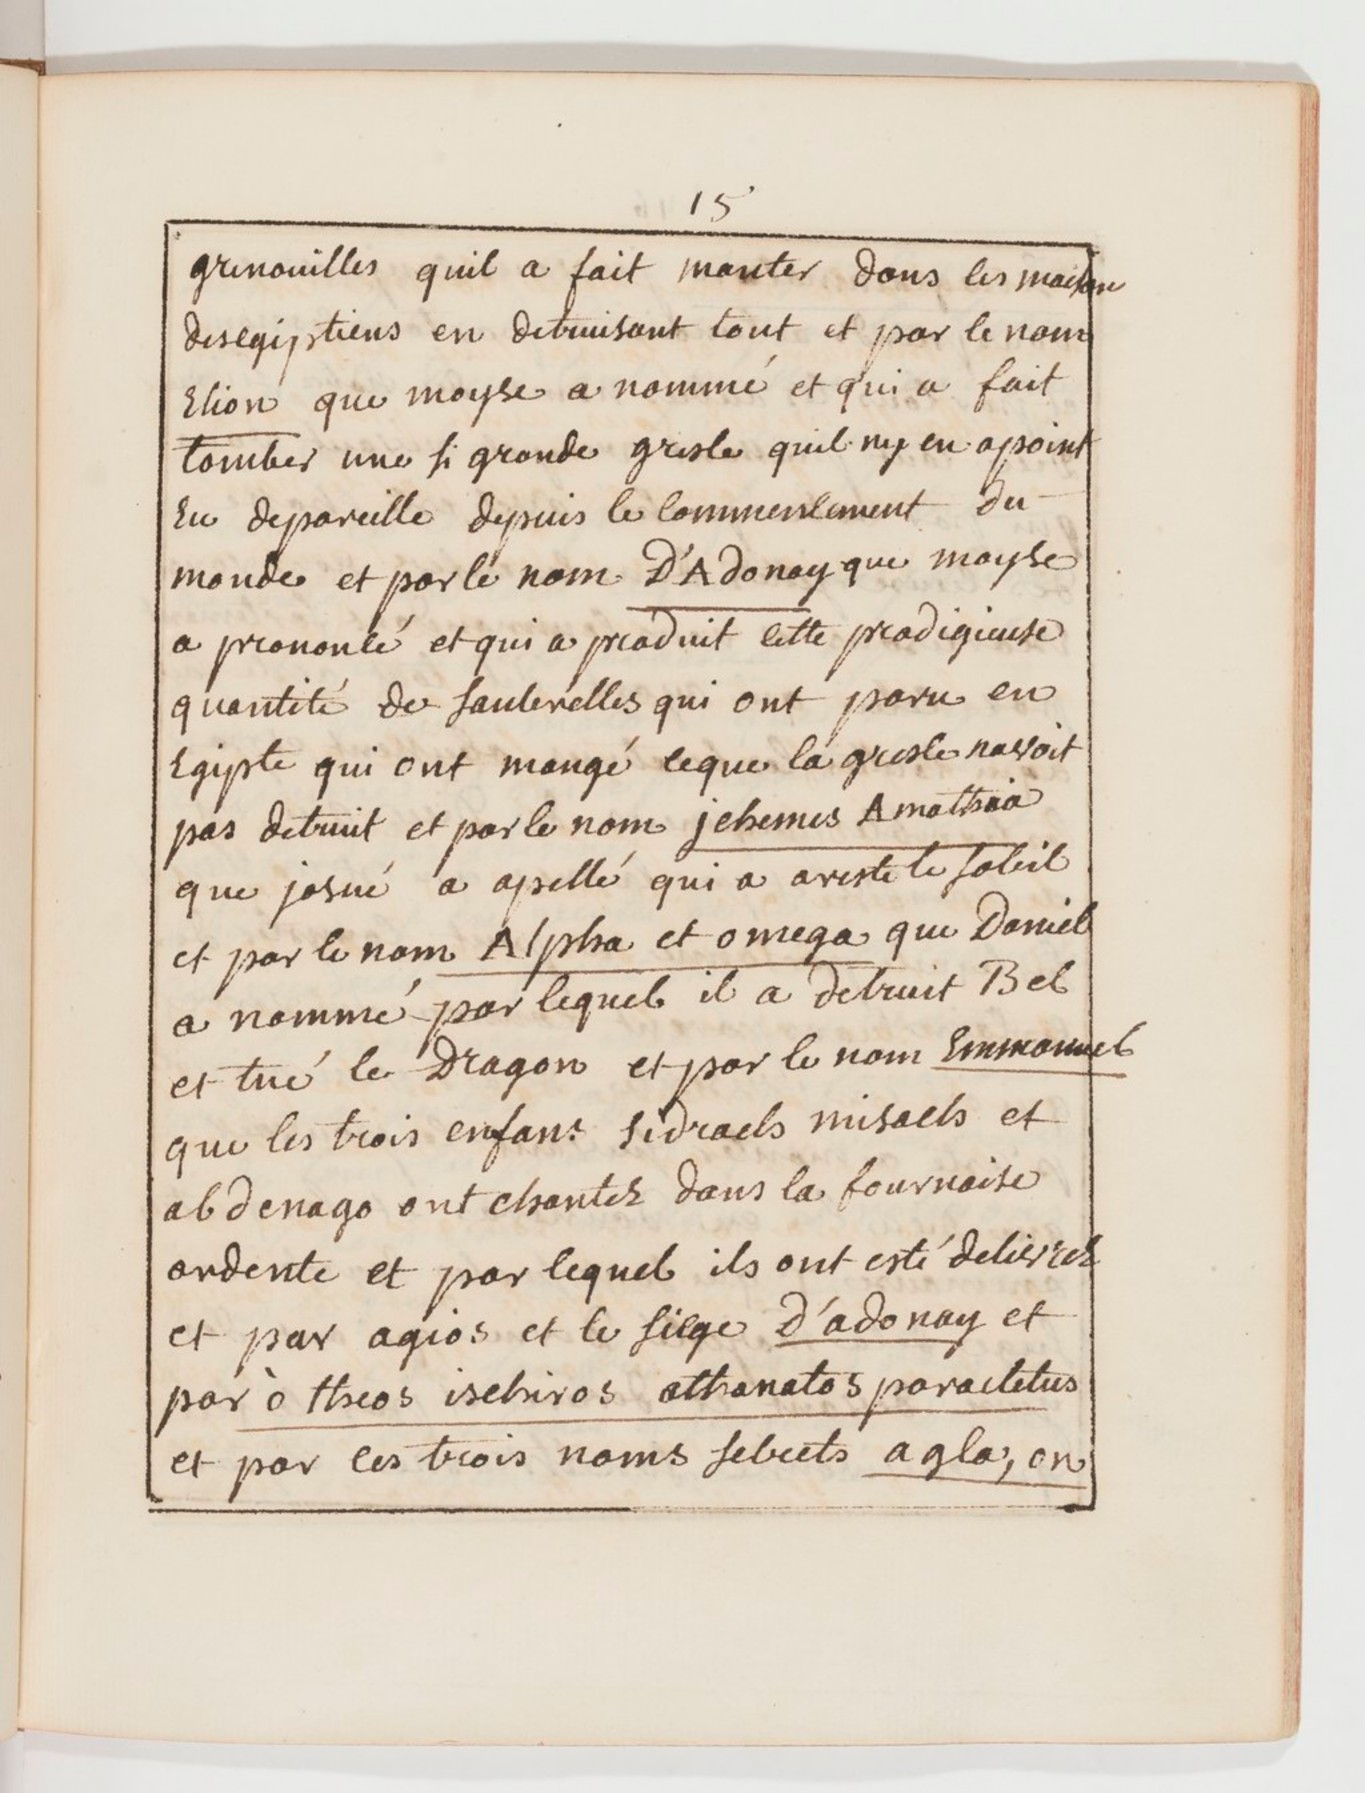 15
grenouilles quil a fait monter dans les maison
desegiptiens en detruisant tout et par le nom
Elion que moyse a nommé et qui a fait
tomber une si grande gresle quil ny en apoint
Eu depareille depuis le commencement du
monde et par le nom D'Adonay que moyse
a prononcé et qui a produit cette prodigieuse
quantité de sauterelles qui ont paru en
Egipte qui ont mangé ceque la gresle navoit
pas detruit et par le nom jehemes Amathia
que josué a apellé qui a areste le soleil
et par le nom Alpha et omega que Daniel
a nommé par lequel il a detruit Bel
et tué le Dragon et par le nom Emmanuel
que les trois enfans Sidraels misaels et
abdenago ont chantez dans la fournaise
ardente et par lequel ils ont esté delivrez
et par agios et le siege D'adonay et
par ò theos ischiros athanatos paracletus
et par ces trois noms secrets agla, on